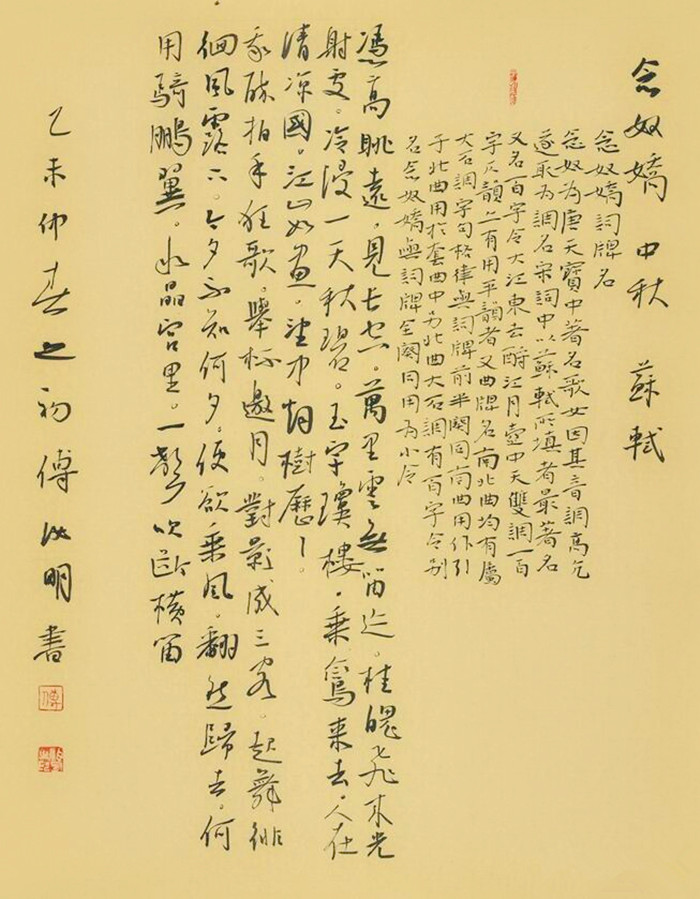 念奴嬌 中秋 蘇軾
念奴嬌詞牌名
念奴为唐天寶中著名歌女因其音調高亢
遂取为調名宋詞中以蘇軾所填者最著名
又名百字令大江東去酹江月壺中天雙調一百
字仄韻亦有用平韻者又曲牌名南北曲均有屬
大石調字句格律與詞牌前半闋同南曲用作引
于北曲用於套曲中另北曲大石調有百字令别
名念奴嬌與詞牌全闋同用为小令
憑高眺遠。見長空。萬里雲無留迹。桂魄飛來光
射處。冷浸一天秋碧。玉宇瓊樓。乘鸞來去。人在
清凉國。江山如畫。望中烟樹歷々。
我醉拍手狂歌。舉杯邀月。對影成三客。起舞徘
徊風露下。今夕不知何夕。便欲乘風。翻然歸去。何
用騎鵬翼。水晶宫里。一聲吹斷横笛
乙未仲春之初傅明書
傅